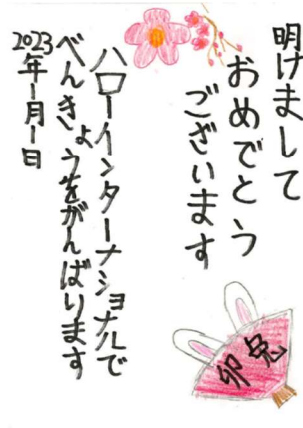 明けまして
おめでとう
ございます
ハローインターナショナルで
べんきょうをがんばります
2023年1月1日
卯兎